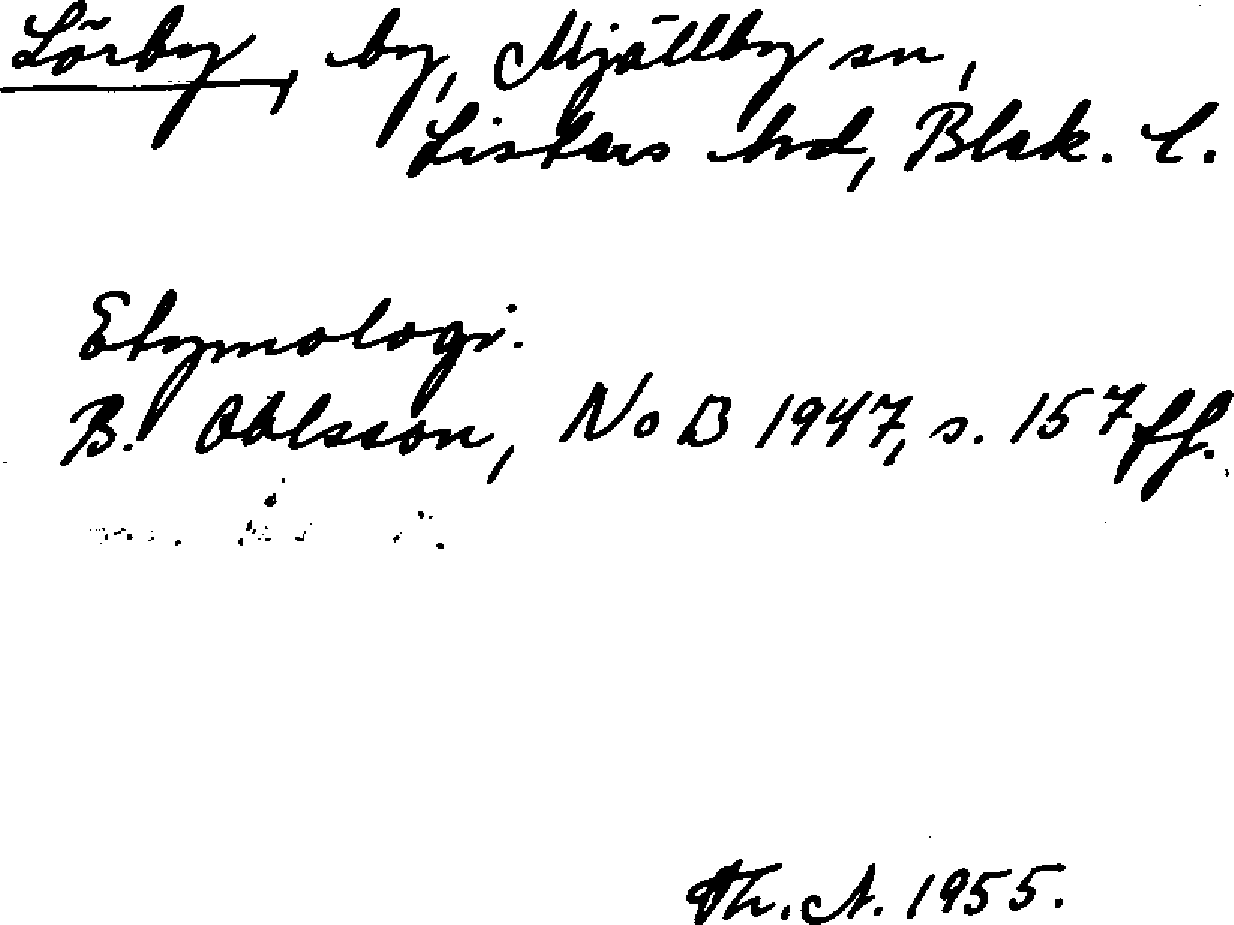 Lörby, by, Mjällby sn,
Listers hd, Blek. l.
Etymologi.
B. Ohlsson, NoB 1947, s. 157 ff.
Th. A. 1955.